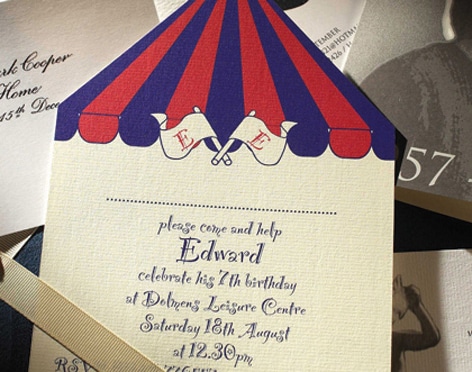 rk Cooper
Home
15th Dec
E E
please come and help
Edward
celebrate his 7th birthday
at Dolmens Leisure Centre
Saturday 18th August
at 12.30pm
RSV
57